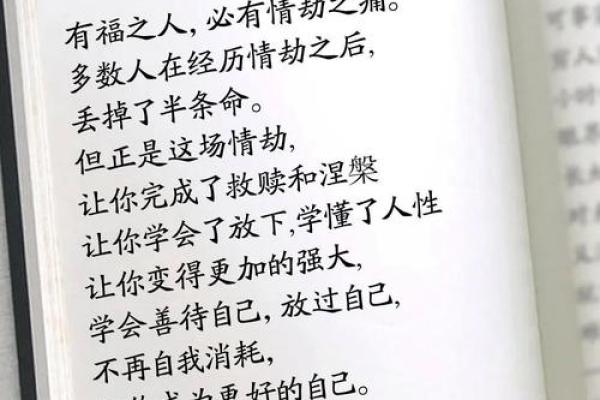 有福之人，必有情劫之痛。
多数人在经历情劫之后，
丢掉了半条命。
但正是这场情劫，
让你完成了救赎和涅槃
让你学会了放下,学懂了人性
让你变得更加的强大，
学会善待自己，放过自己，
不再自我消耗，
成为更好的自己。